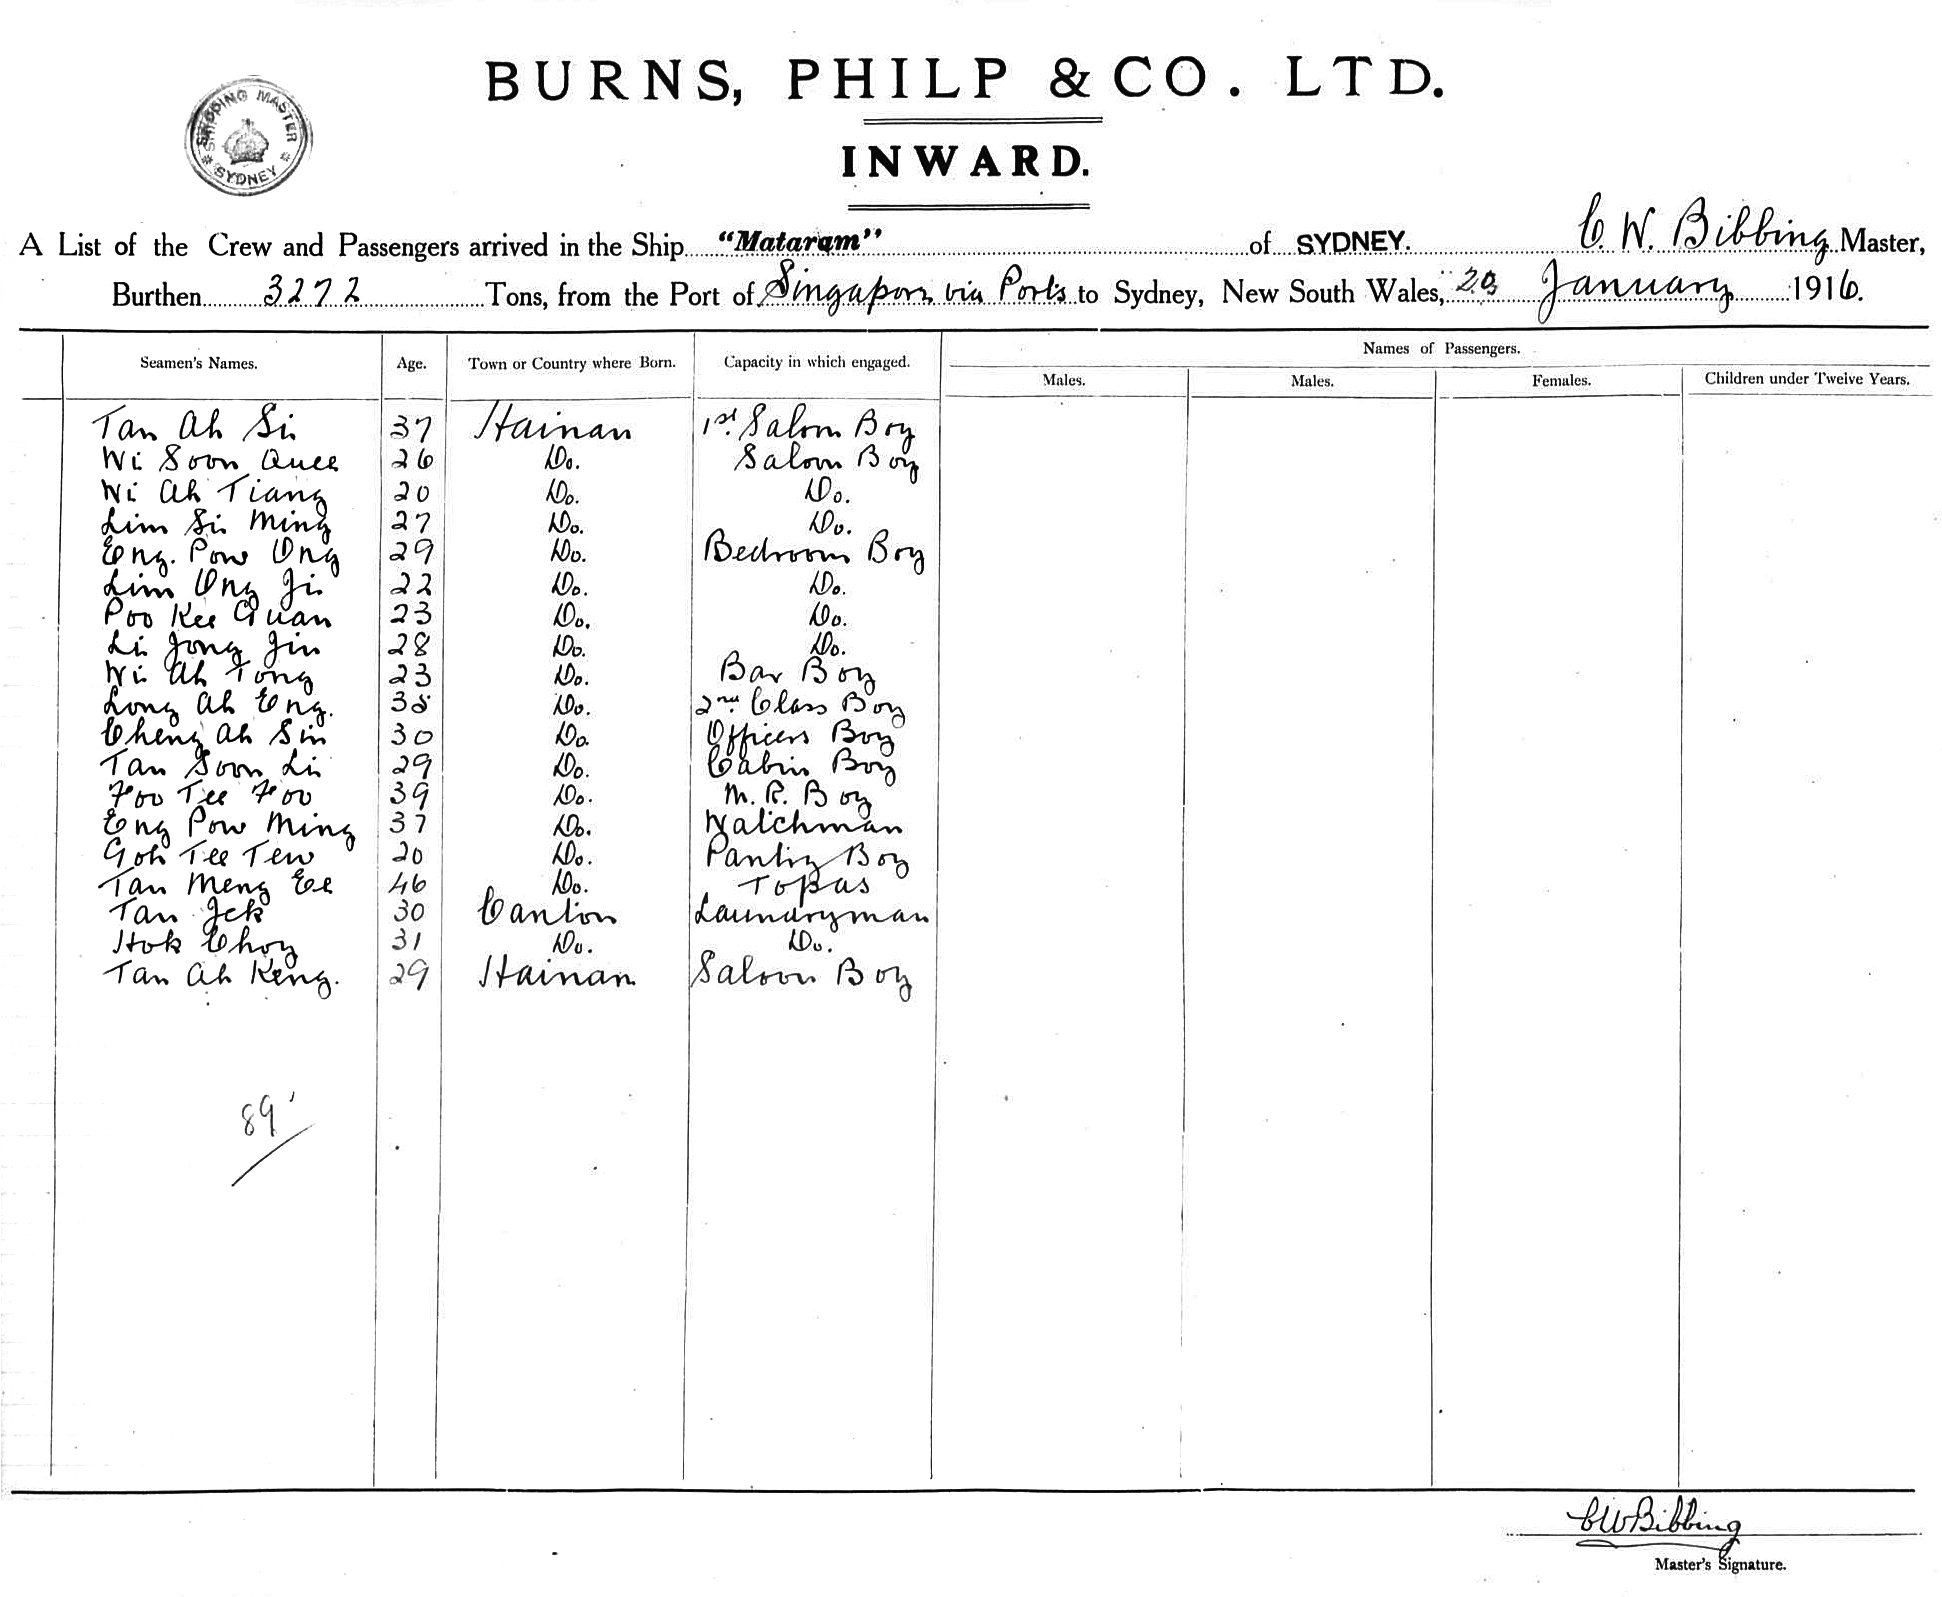 BURNS, PHILP & CO. LTD.
SHIPPING MASTER
SYDNEY
INWARD.
A List of the Crew and Passengers arrived in the Ship "Mataram" of SYDNEY. C. W. Bibbing Master,
Burthen 3272 Tons, from the Port of Singapore via Ports to Sydney, New South Wales, January 1916.
Names of Passengers.
Seamen's Names. Age. Town or Country where Born. Capacity in which engaged. Males. Males. Females. Children under Twelve Years.
Tan Ah Si 37 Hainan 1st. Saloon Boy
Wi Soon Quee 26 Do. Saloon Boy
Wi Ah Tiang 20 Do. Do.
Lim Si Ming 27 Do. Do.
Eng. Pow Ong 29 Do. Bedroom Boy
Lim Ong Ji 22 Do. Do.
Poo Kee Guan 23 Do. Do.
Li Jong Jin 28 Do. Do.
Wi Ah Tong 23 Do. Bar Boy
Long Ah Eng. Do. 2nd Class Boy
Cheng Ah Sin 30 Do. Officers Boy
Tan Soon Li 29 Do. Cabin Boy
Foo Tee Foo 39 Do. M. R. Boy
Eng Pow Ming 37 Do. Watchman
Goh Tee Tew 20 Do. Pantry Boy
Tan Meng Ee 46 Do. Topas
Tan Jek 30 Canton Laundryman
Hok Choy 31 Do. Do.
Tan Ah Keng. 29 Hainan Saloon Boy
89
CWBibbing
Master's Signature.